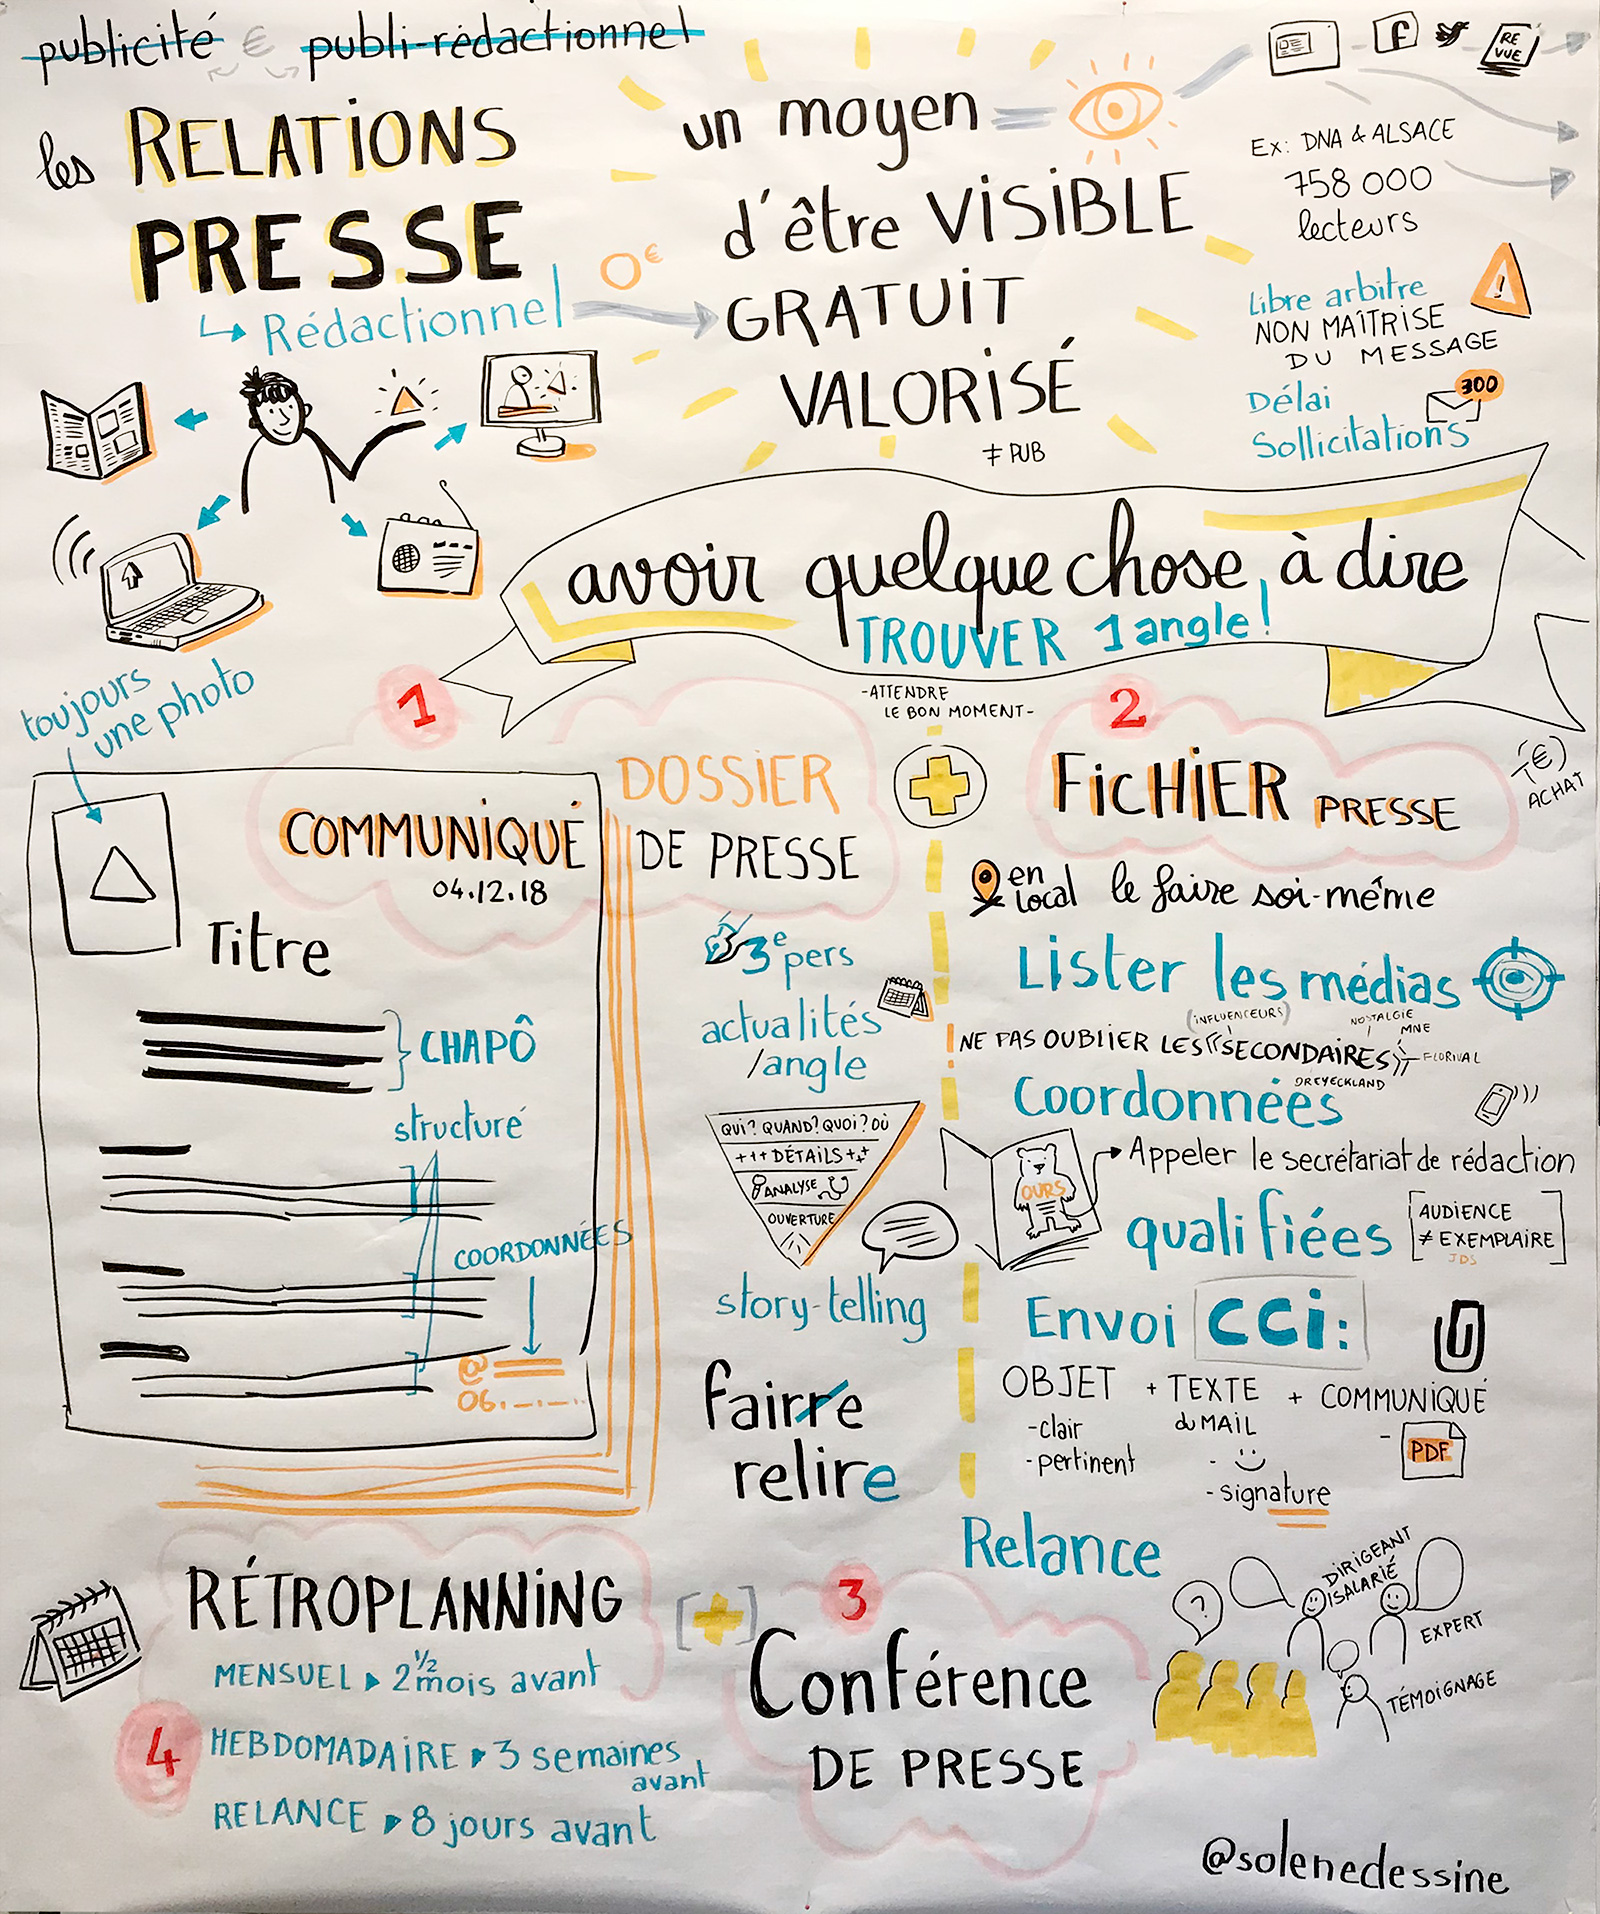 publicité € publi-rédactionnel
les RELATIONS
PRESSE
Rédactionnel
0€
un moyen
d'être VISIBLE
GRATUIT
VALORISÉ
≠ PUB
f
RE
VUE
Ex: DNA & ALSACE
758 000
lecteurs
Libre arbitre
!
NON MAÎTRISE
DU MESSAGE
Délai
300
Sollicitations
avoir quelque chose à dire
TROUVER 1 angle !
-ATTENDRE
LE BON MOMENT-
toujours
une photo
1
COMMUNIQUÉ
04.12.18
Titre
CHAPÔ
structuré
COORDONNÉES
@
06.
DOSSIER
DE PRESSE
3e pers
actualités
/angle
QUI? QUAND? QUOI? OÙ
+++ DÉTAILS +++
ANALYSE
OUVERTURE
story-telling
fairre
relire
2
FICHIER PRESSE
(€)
ACHAT
en
local
le faire soi-même
Lister les médias
(INFLUENCEURS)
NOSTALGIE
MNE
! NE PAS OUBLIER LES "SECONDAIRES"
FLORIVAL
DREYECKLAND
Coordonnées
OURS
Appeler le secrétariat de rédaction
qualifiées
[AUDIENCE
≠ EXEMPLAIRE]
JDS
Envoi CCi:
OBJET + TEXTE + COMMUNIQUÉ
du MAIL
-clair
-pertinent
-
- signature
- PDF
Relance
3
Conférence
DE PRESSE
?
DIRIGEANT
/SALARIÉ
EXPERT
TÉMOIGNAGE
RÉTROPLANNING
MENSUEL ▸ 2 1/2 mois avant
4
HEBDOMADAIRE ▸ 3 semaines
avant
RELANCE ▸ 8 jours avant
@solenedessine